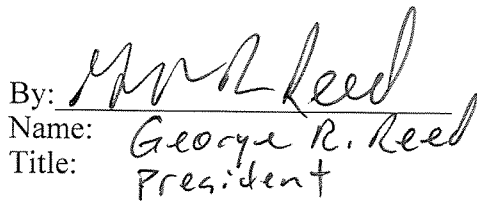 By: Reed
Name: George R. Reed
Title: President